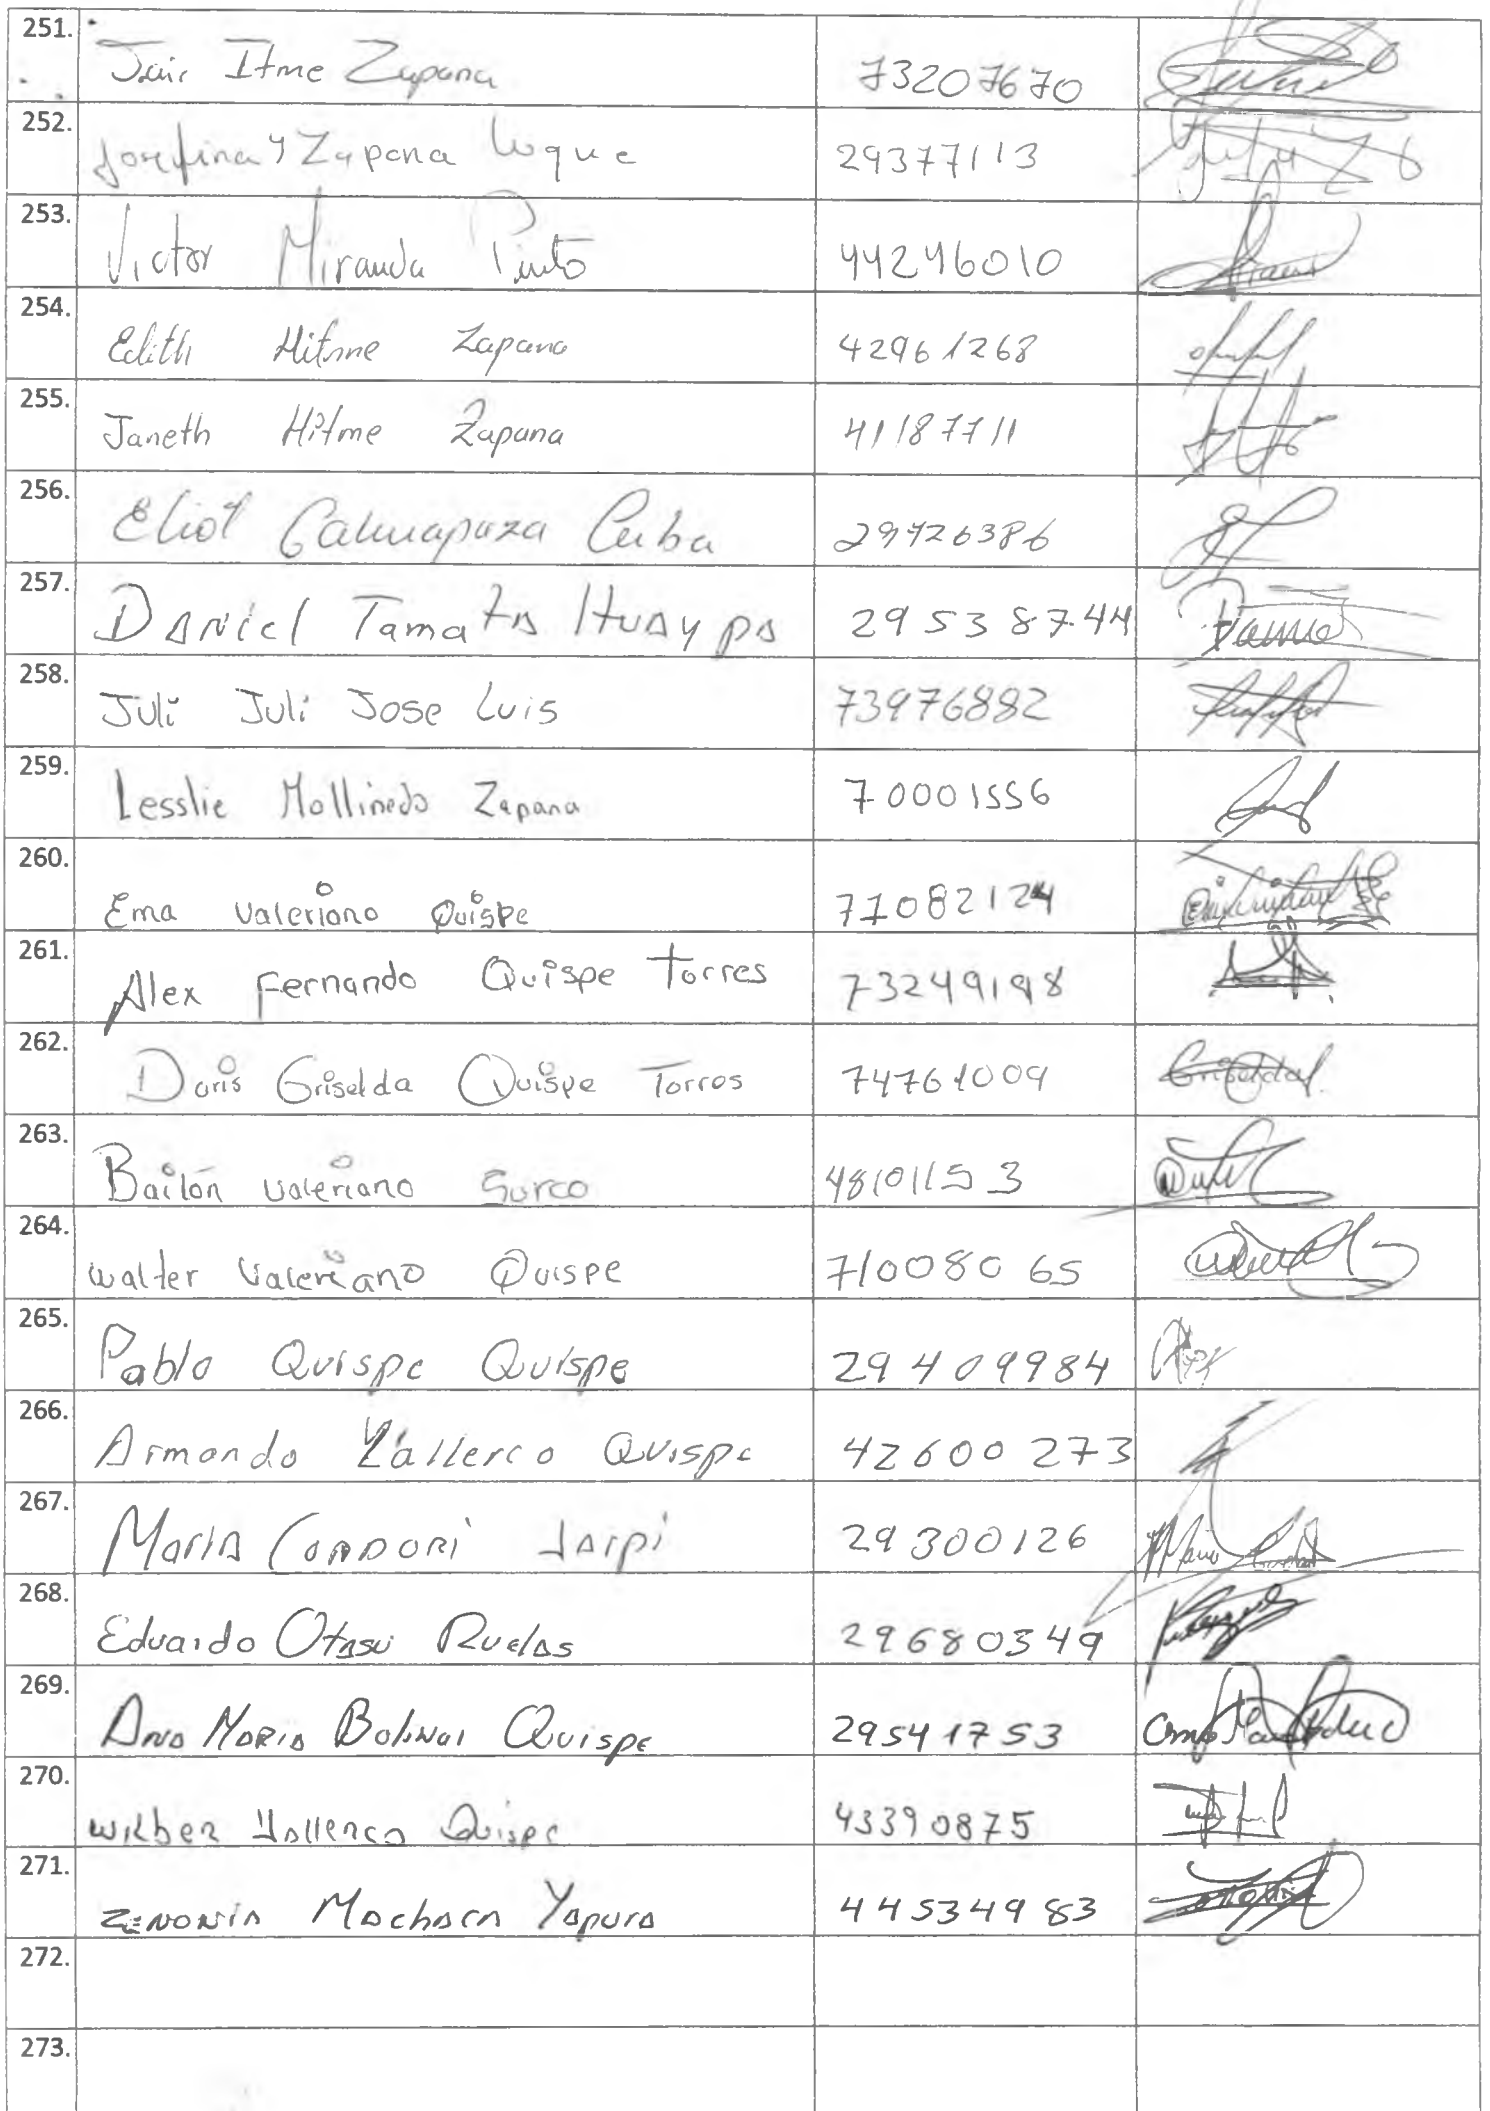 251. Jair Itme Zapana 73207670
252. Josefina Y Zapana Luque 29377113
253. Victor Miranda Pinto 44246010
254. Edith Hitme Zapana 42961268
255. Janeth Hitme Zapana 41187711
256. Eliot Cahuapaza Cuba 29726386
257. DANiel Tamata HUAypa 29538744
258. Juli Juli Jose Luis 73976882
259. Lesslie Mollinedo Zapana 70001556
260. Ema Valeriano Quispe 71082124
261. Alex Fernando Quispe Torres 73249198
262. Doris Griselda Quispe Torres 74761009 Griselda
263. Bailón Valeriano Surco 48101153
264. Walter Valeriano Quispe 71008065
265. Pablo Quispe Quispe 29409984
266. Armando Yallerco Quispe 42600273
267. Maria CONDORI Jarpi 29300126
268. Eduardo Otasu Ruelas 29680349
269. Ana MARIA Quispe 29541753
270. Wilber Yallerco Quispe 43390875
271. ZENONIA Machaca Yapura 44534983
272.
273.